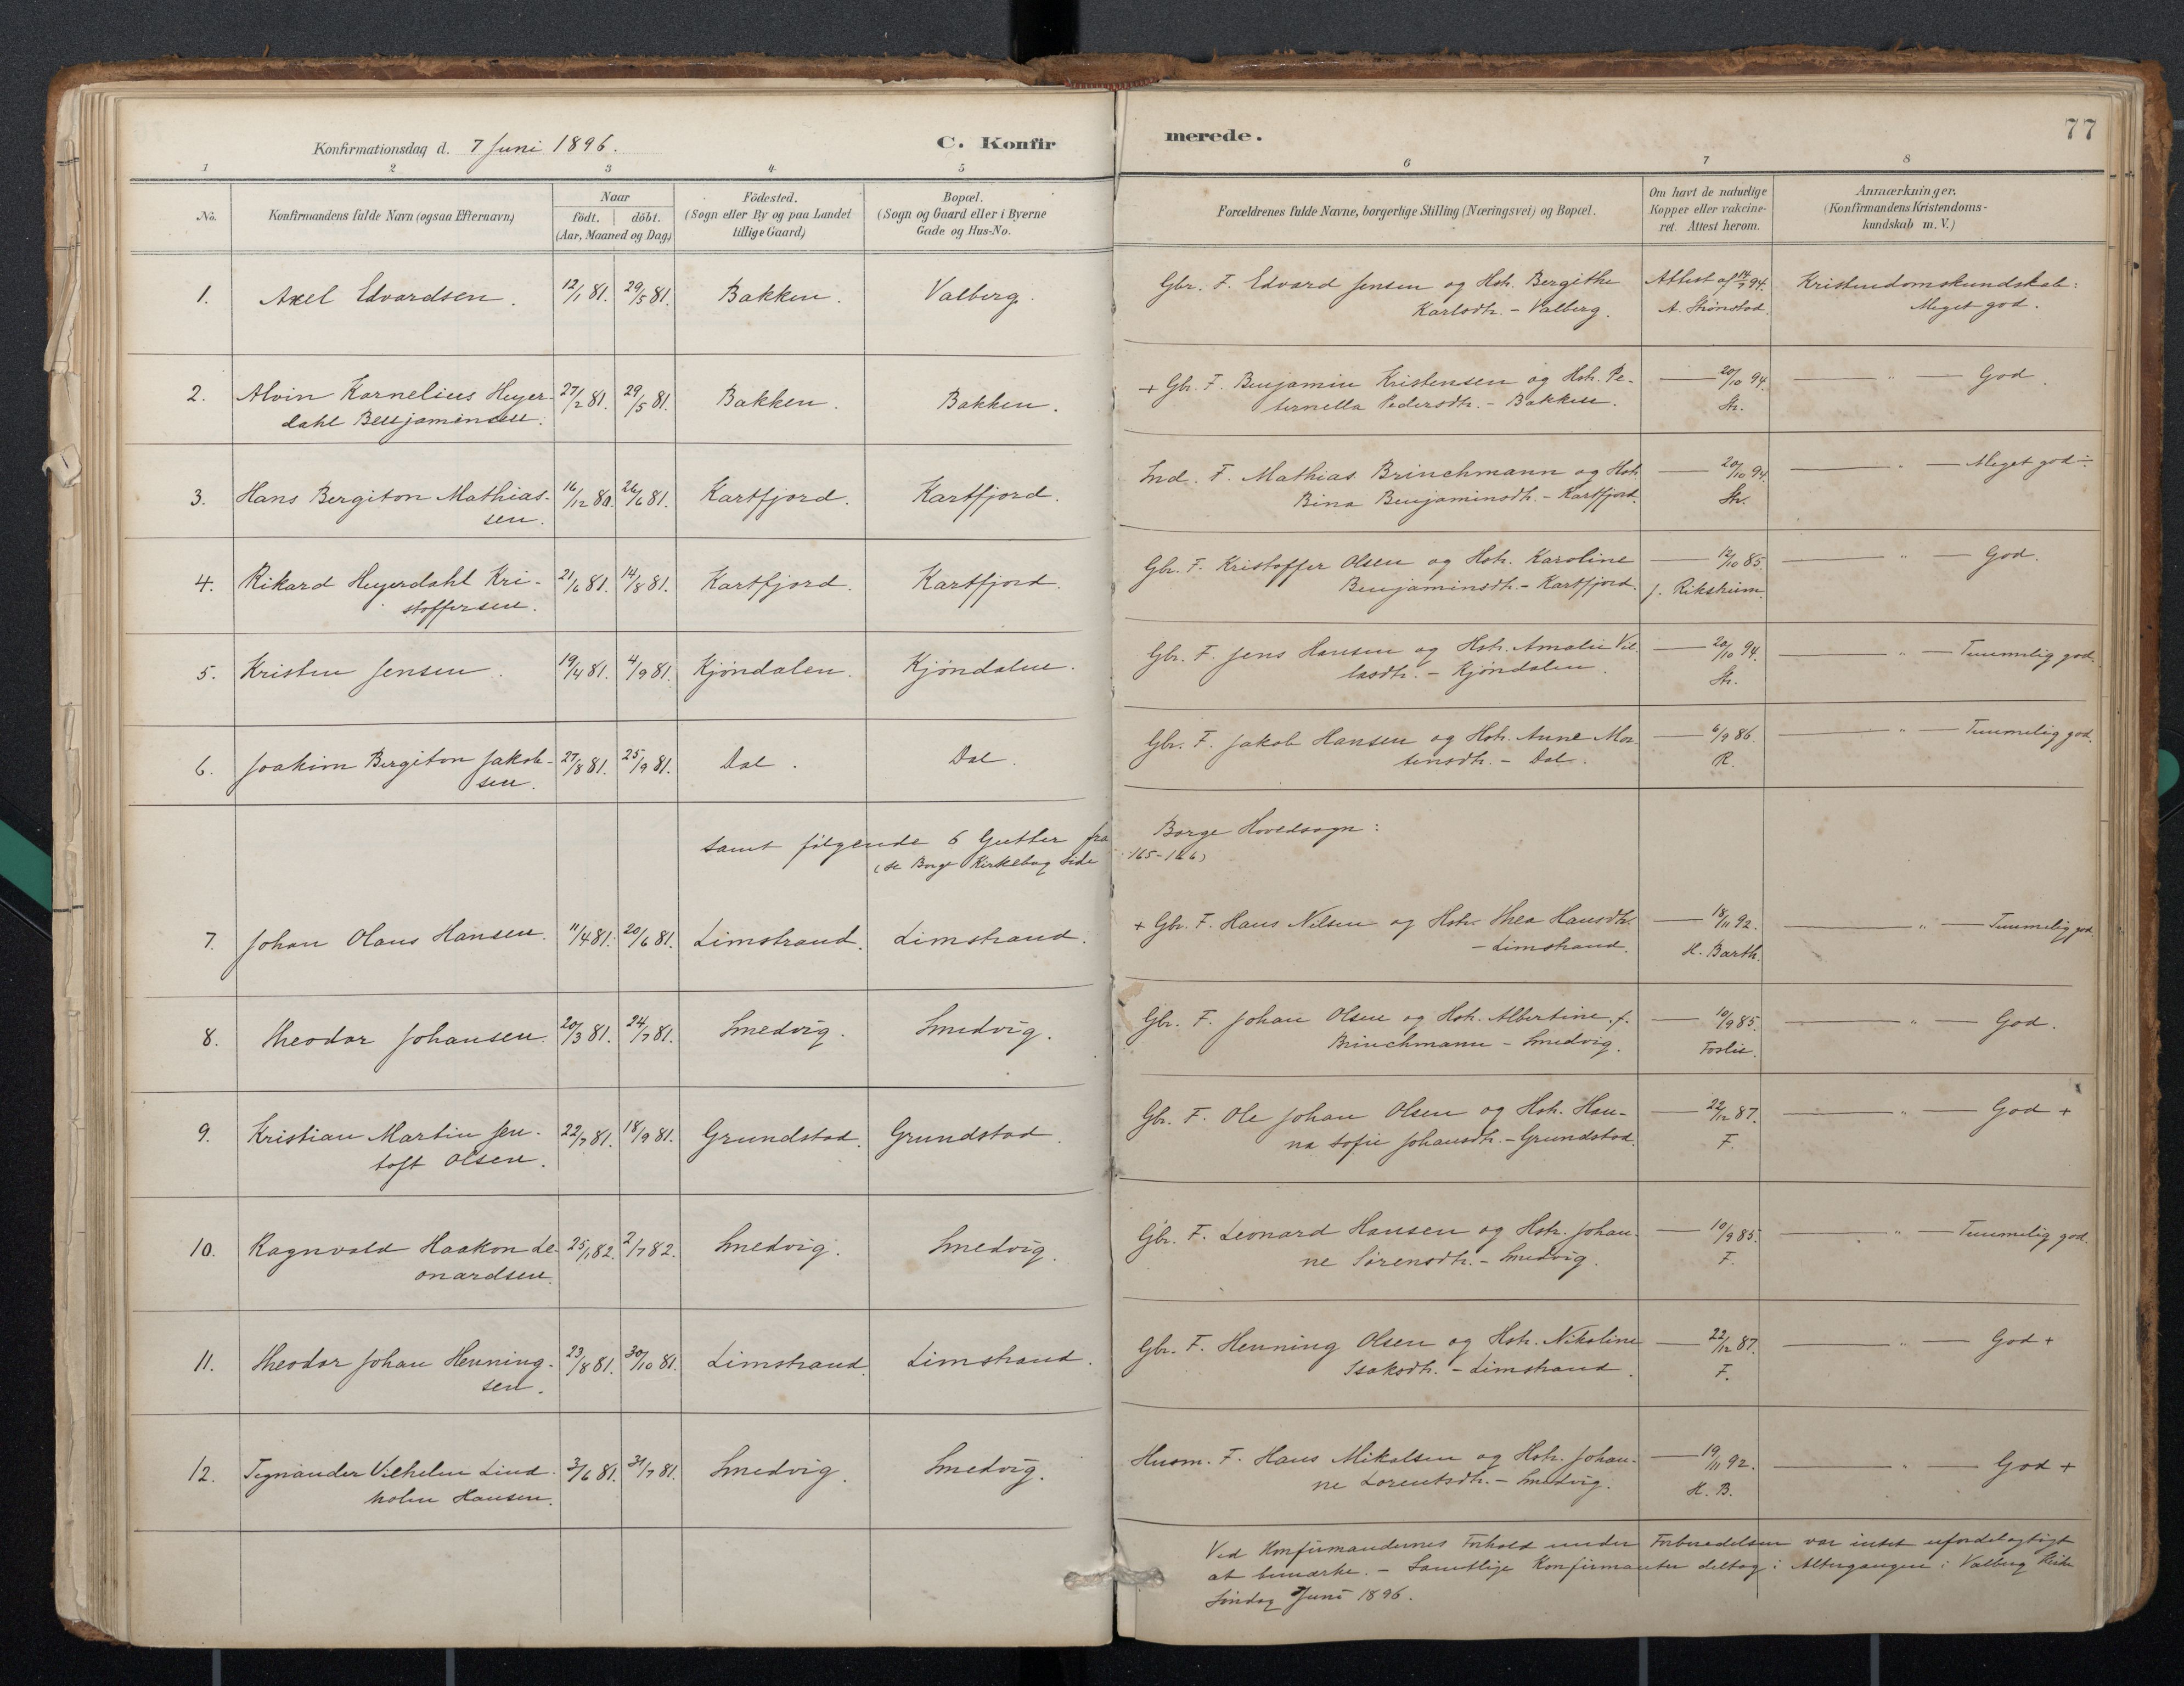 Konfirmationsdag d. 7 Juni 1896.
C. Konfir merede.
77
1 2 3 4 5 6 7 8
No.
Konfirmandens fulde Navn (ogsaa Efternavn)
Naar
födt. döbt.
(Aar, Maaned og Dag)
Födested.
(Sogn eller By og paa Landet
tillige Gaard)
Bopæl.
(Sogn og Gaard eller i Byerne
Gade og Hus-No.
Forældrenes fulde Navne, borgerlige Stilling (Næringsvei) og Bopæl.
Om havt de naturlige
Kopper eller vakcine-
ret. Attest herom.
Anmærkninger.
(Konfirmandens Kristendoms-
kundskab m. V.)
1. Axel Edvardsen. 12/1 81. 29/5 81. Bakken. Valberg. Gbr. F. Edvard Jensen og Hstr. Bergithe Attest af 14/7 94. Kristendomskundskab:
Karlsdtr. - Valberg. A. Strönstad. Meget god.
2. Alvin Kornelius Heyer- 27/2 81. 29/5 81. Bakken. Bakken. + Gbr. F. Benjamin Kristensen og Hstr. Pe- — 20/10 94. — " — God.
dahl Benjaminsen. ternella Pedersdtr. - Bakken. Str.
3. Hans Bergiton Mathias- 16/12 80. 26/6 81. Kartfjord. Kartfjord. Ind. F. Mathias Brinchmann og Hstr. — 20/10 94. — " — Meget god ÷
sen. Bina Benjaminsdtr. - Kartfjord. Str.
4. Rikard Heyerdahl Kri- 21/6 81. 14/8 81. Kartfjord. Kartfjord. Gbr. F. Kristoffer Olsen og Hstr. Karoline — 12/10 85. — " — God.
stoffersen. Benjaminsdtr. - Kartfjord. J. Rikstrum.
5. Kristen Jensen. 19/4 81. 4/9 81. Kjöndalen. Kjöndalen. Gbr. F. Jens Hansen og Hstr. Amalie Vil- — 20/10 94. — " — Temmelig god.
lasdtr. - Kjöndalen. Str.
6. Joakim Bergiton Jakob- 27/8 81. 25/9 81. Dal. Dal. Gbr. F. Jakob Hansen og Hstr. Anne Mor- — 6/9 86. — " — Temmelig god.
sen. tensdtr. - Dal. R.
samt følgende 6 Gutter fra Borge Hovedsogn:
(se Borge Kirkebog Side 165-166)
7. Johan Olaus Hansen. 11/4 81. 20/6 81. Limstrand. Limstrand. + Gbr. F. Hans Nilsen og Hstr. Thea Hansdtr. — 18/11 92. — " — Temmelig god.
- Limstrand. H. Barth.
8. Theodor Johansen. 20/3 81. 24/7 81. Smedvig. Smedvig. Gbr. F. Johan Olsen og Hstr. Albertine, f. — 10/9 85. — " — God.
Brinchmann - Smedvig. Foslie.
9. Kristian Martin Jen- 22/7 81. 18/9 81. Grundstad. Grundstad. Gbr. F. Ole Johan Olsen og Hstr. Han- — 22/12 87. — " — God +
toft Olsen. na Sofie Johansdtr. - Grundstad. F.
10. Ragnvald Haakon Le- 25/1 82. 2/7 82. Smedvig. Smedvig. Gbr. F. Leonard Hansen og Hstr. Johan- — 10/9 85. — " — Temmelig god.
onardsen. ne Sörensdtr. - Smedvig. F.
11. Theodor Johan Henning- 23/8 81. 30/10 81. Limstrand. Limstrand. Gbr. F. Henning Olsen og Hstr. Nikoline — 22/12 87. — " — God +
sen. Isaksdtr. - Limstrand. F.
12. Tegnander Vilhelm Lind- 3/6 81. 31/7 81. Smedvig. Smedvig. Husm. F. Hans Mikalsen og Hstr. Johan- — 19/11 92. — " — God +
holm Hansen. ne Lorentsdtr. - Smedvig. H. B.
Ved Konfirmandernes Forhold under Forberedelsen var intet ufordelagtigt
at bemærke. - Samtlige Konfirmanter deltog i Altergangen i Valberg Kirke
Söndag 7 Juni 1896.